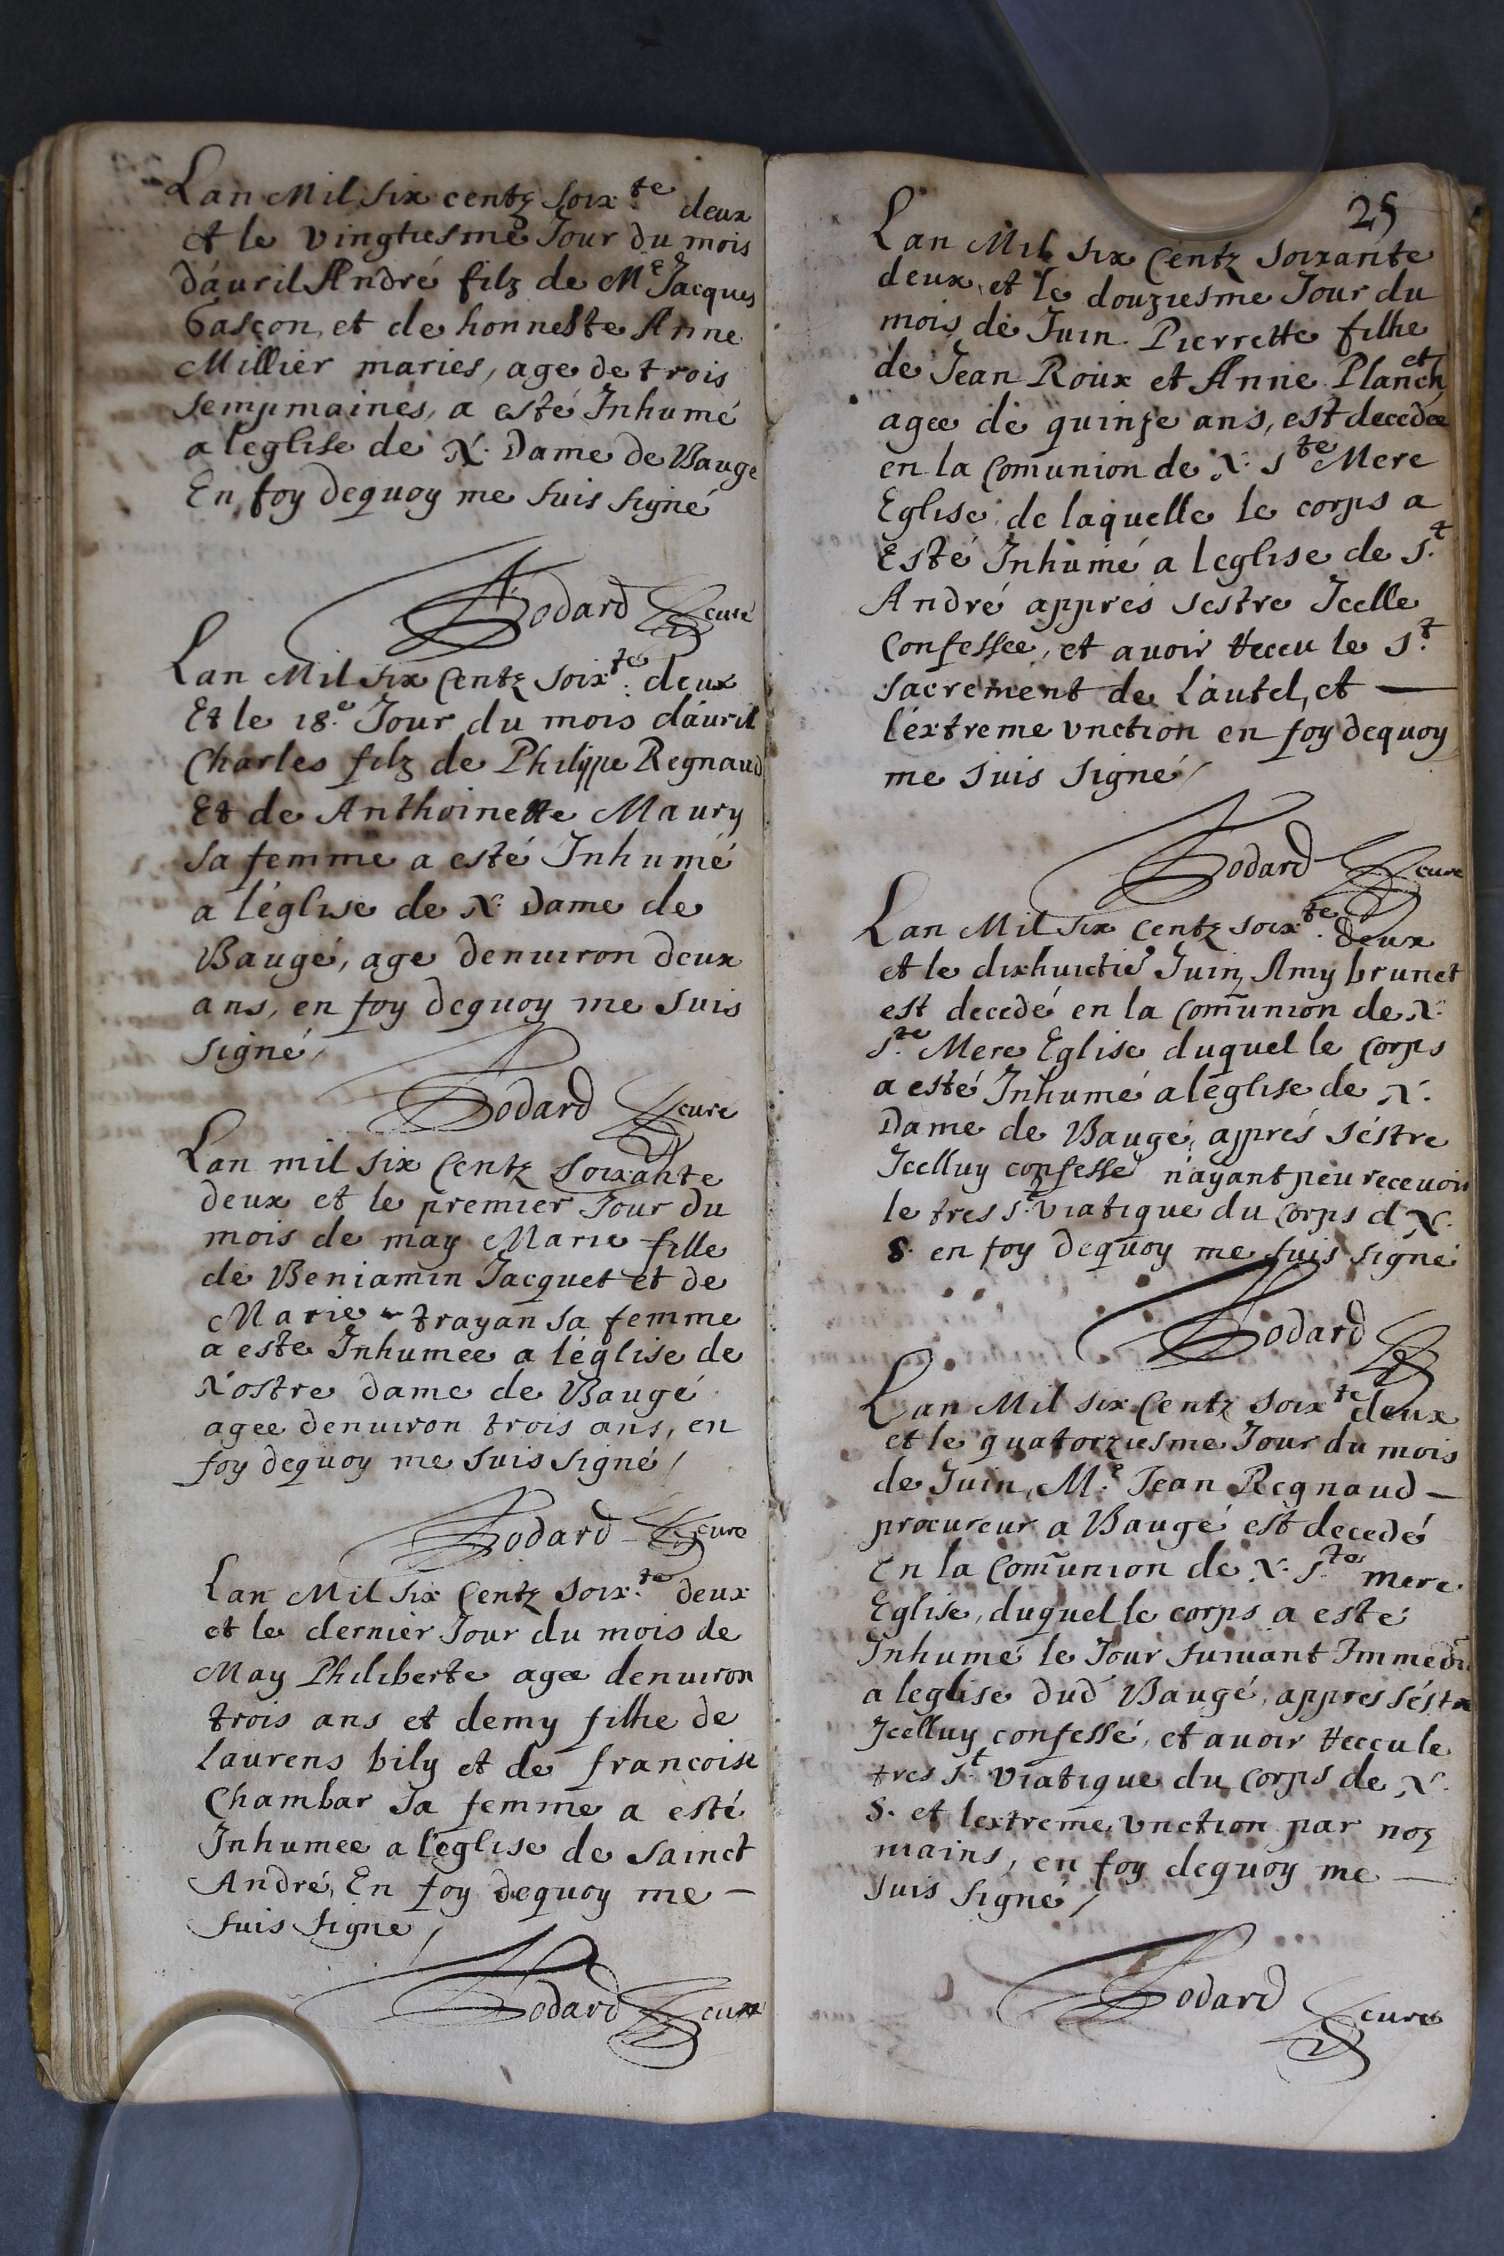 Lan Mil six centz soix.te deux
et le vingtiesme Jour du mois
dáuril André filz de Me Jacques
Gascon, et de honneste Anne
Millier mariés, age de trois
sempmaines, a esté Inhumé
a leglise de N. Dame de Baugé
En foy dequoy me suis signé
Bodard curé
Lan Mil six Centz soix.te deux
Et le 18.e Jour du mois dáuril
Charles filz de Philippe Regnaud
Et de Anthoinette Maury
sa femme a esté Inhumé
a léglise de N. Dame de
Baugé, age denuiron deux
ans, en foy dequoy me suis
signé/
Bodard cure
Lan mil six Centz soixante
deux et le premier Jour du
mois de may Marie fille
de Beniamin Jacquet et de
Marie trayan sa femme
a este Inhumee a léglise de
Nostre dame de Baugé
agee denuiron trois ans, en
foy dequoy me suis signé/
Bodard cure
Lan Mil six Centz soix.te deux
et le dernier Jour du mois de
May Philiberte agee denuiron
trois ans et demy filhe de
Laurens bily et de francoise
Chambar sa femme a esté
Inhumee a léglise de sainct
André, En foy dequoy me —
suis signe/
Bodard cure
25
Lan Mil six Centz soixante
deux, et le douziesme Jour du
mois de Juin Pierrette filhe
de Jean Roux et Anne Planchet
agee de quinze ans, est decedée
en la Comunion de N. s.te Mere
Eglise de laquelle le corps a
Esté Inhumé a leglise de s.t
André apprés sestre Jcelle
Confessee, et auoir receu le s.t
sacrement de Láutel, et —
léxtreme vnction en foy dequoy
me suis signé/
Bodard cure
Lan Mil six Centz soix.te deux
et le dixhuictie Juin, Amy brunet
est decedé en la Com̃union de N.
s.te Mere Eglise duquel le Corps
a esté Inhumé a léglise de N.
Dame de Baugé, apprés séstre
Jcelluy confessé n'ayant peu receuoir
le tres s.t viatique du Corps d N.
S. en foy dequoy me suis signé
Bodard
Lan Mil six Centz soix.te deux
et le quatorziesme Jour du mois
de Juin, M.e Jean Regnaud —
procureur a Baugé est decedé
En la Com̃union de N. s.te mere
Eglise, duquel le corps a esté
Inhumé le Jour suiuant
a leglise dud Baugé, appres séstre
Jcelluy confessé, et auoir receu le
tres s.t viatique du Corps de N.
S. et lextreme vnction par noz
mains, en foy dequoy me —
suis signé/
Bodard cure